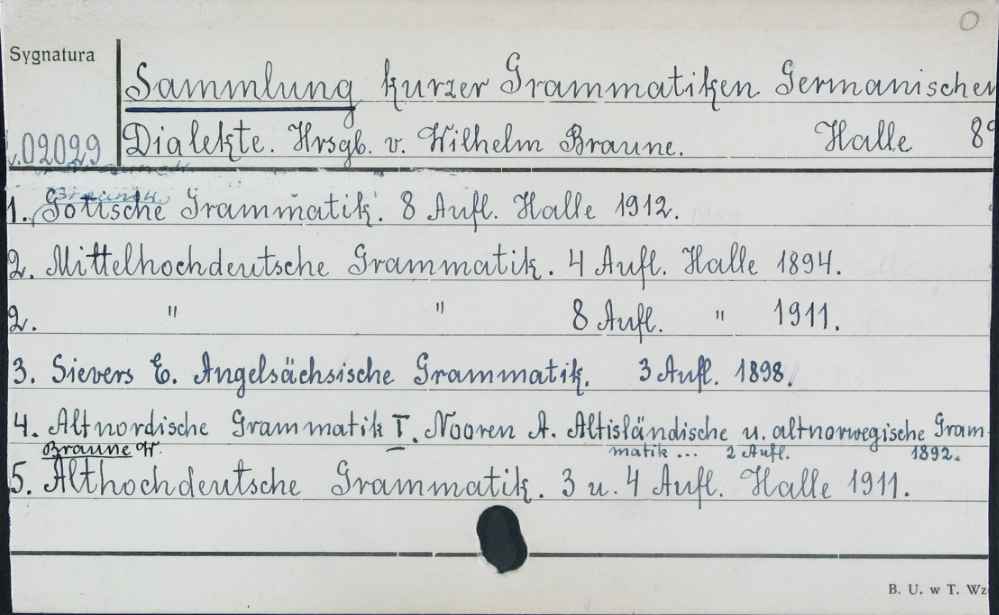 O
Sygnatura
Sammlung kurzer Grammatiken Germanischer
02029 Dialekte. Hrsgb. v. Wilhelm Braune. Halle 8°
Braune W.
1. Gotische Grammatik. 8 Aufl. Halle 1912.
2. Mittelhochdeutsche Grammatik. 4 Aufl. Halle 1894.
2. " " 8 Aufl. " 1911.
3. Sievers E. Angelsächsische Grammatik. 3 Aufl. 1898.
4. Altnordische Grammatik I. Nooren A. Altisländische u. altnorwegische Gram-
matik ... 2 Aufl. 1892.
Braune W.
5. Althochdeutsche Grammatik. 3 u. 4 Aufl. Halle 1911.
B. U. w T. Wz